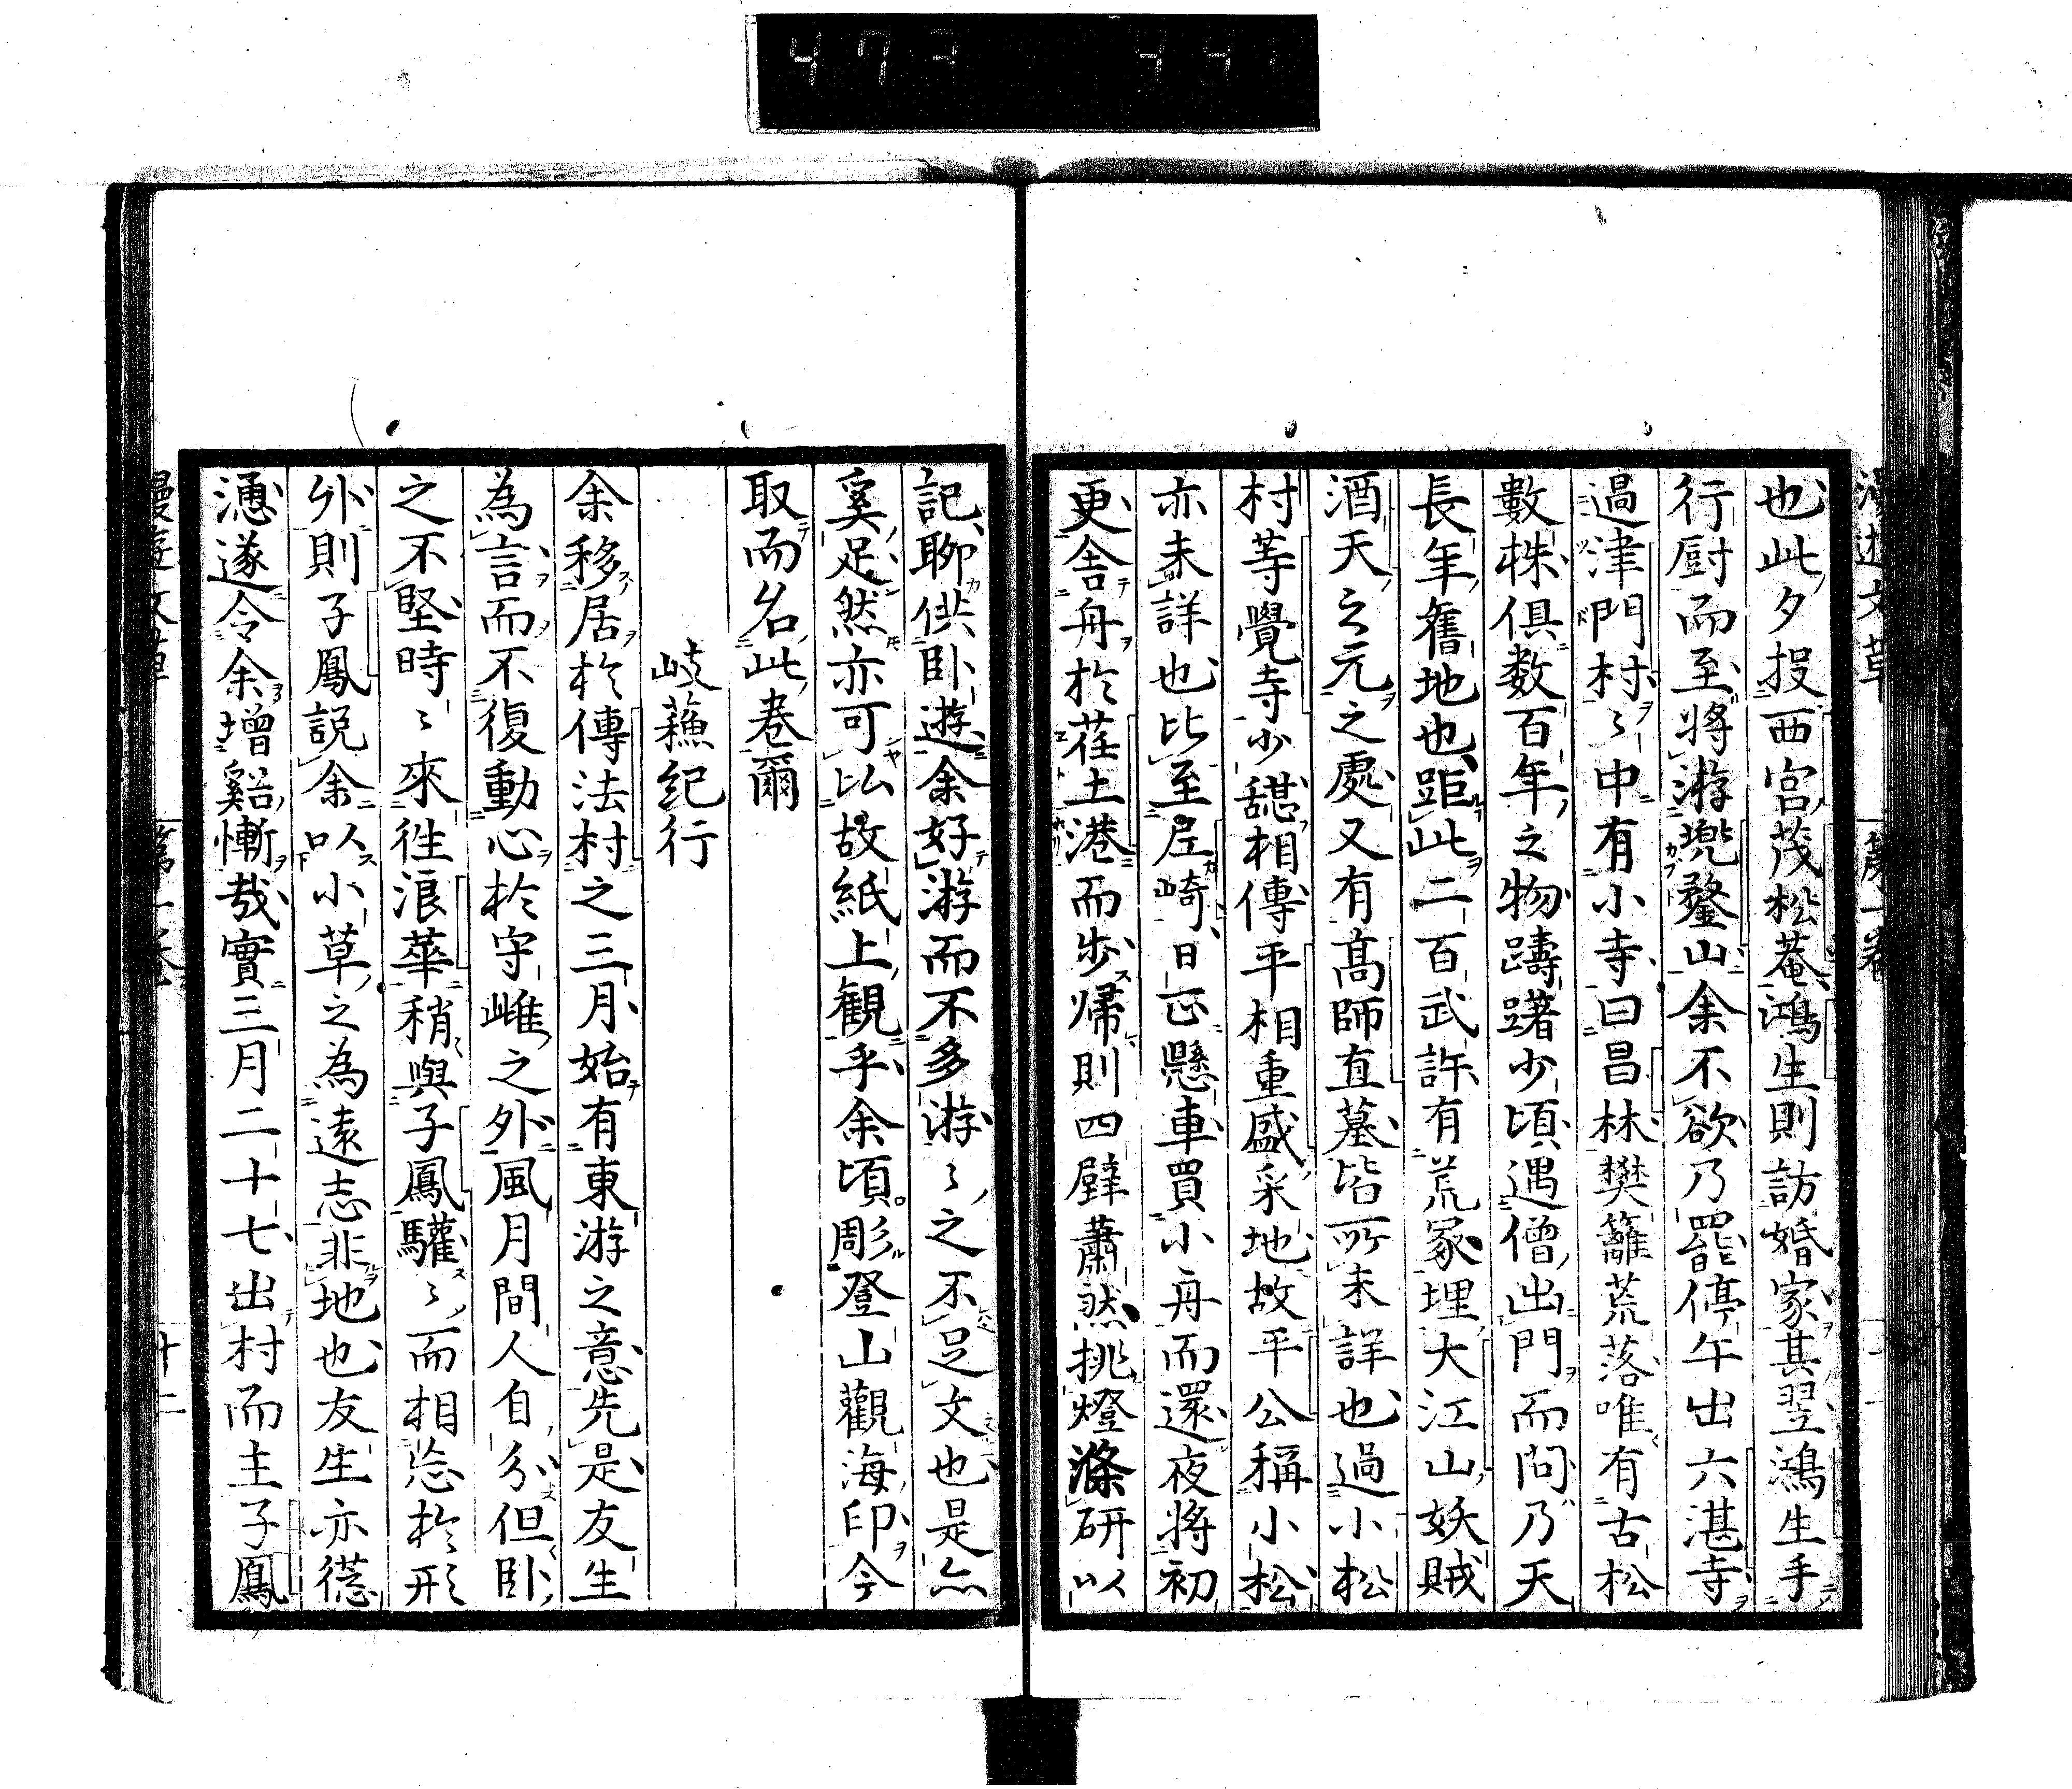 也此夕投西宮茂松菴鴻生則訪婚家其翌鴻生手
行厨而至將游兠鍪山余不欲乃罷停午出六湛寺
過津門村〻中有小寺曰昌林樊籬荒落唯有古松
數株俱数百年之物躊躇少頃遇僧出門而問乃天
長年舊地也距此二百武許有荒冢埋大江山妖賊
酒天之元之處又有髙師直墓皆所未詳也過小松
村等覺寺少憇相傳平相重盛采地故平公稱小松
亦未詳也比至尼崎日正懸車買小舟而還夜將初
更舎舟於荏土港而步帰則四壁蕭然挑燈滌研以
記聊供卧遊余好游而不多游〻之不足文也是亦
奚足然亦可以故紙上觀乎余頃彫登山觀海印今
取而名此巻爾
岐蘓紀行
余移居於傳法村之三月始有東游之意先是友生
為言而不復動心於守雌之外風月間人自分但卧
之不堅時〻來徃浪華稍與子鳳驩〻而相忘於形
外則子鳳説余以小草之為遠志非地也友生亦慫
慂遂令余增谿慚哉實三月二十七出村而主子鳳
第一巻
十二